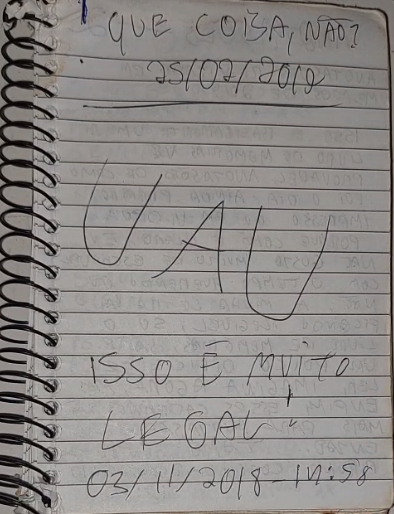 QUE COISA, NÃO?
25/02/2018
UAU
ISSO É MUITO
LEGAL!
03/11/2018-